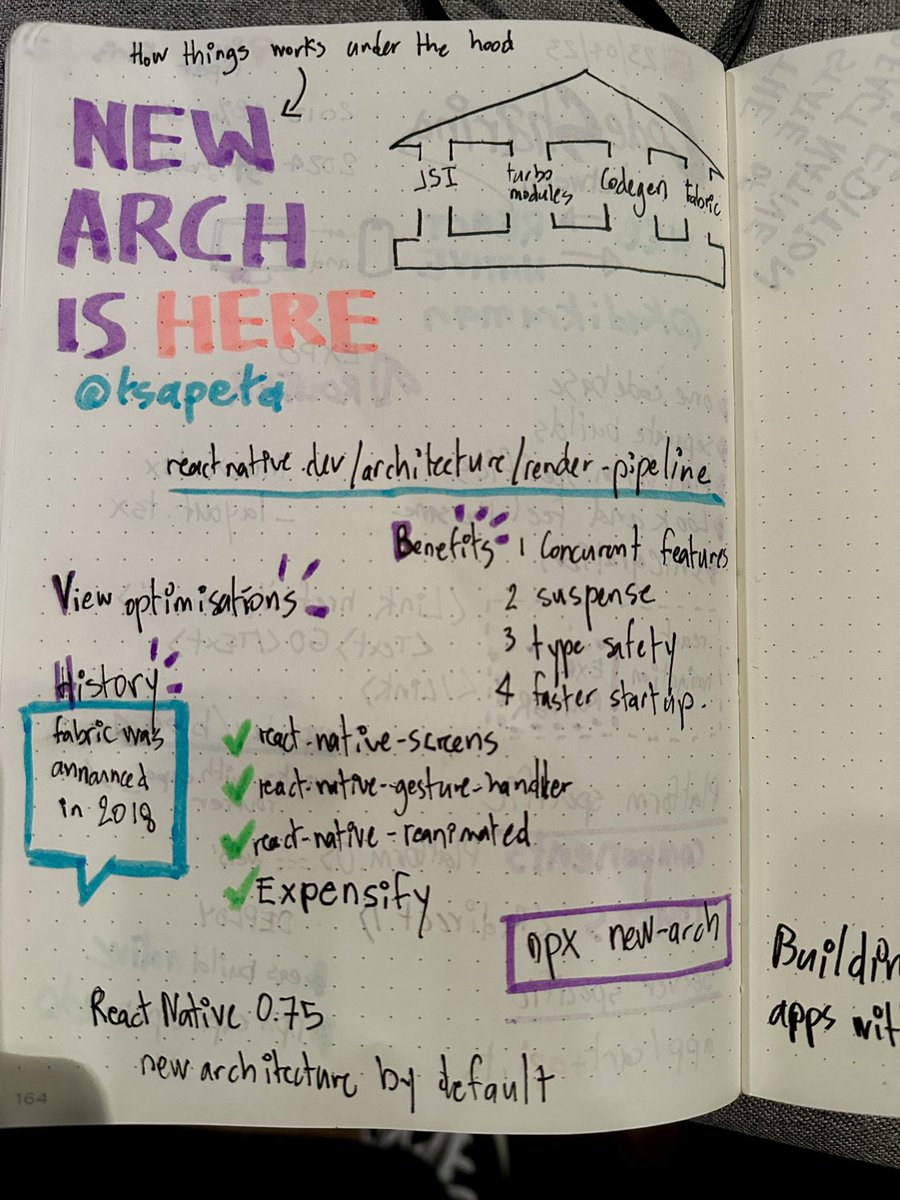 How things works under the hood
NEW
ARCH
IS HERE
@tsapeta
JSI
turbo
modules
Codegen
fabric
reactnative.dev/architecture/render-pipeline
Benefits
1 Concurent features
2 suspense
3 type safety
4 faster startup.
View optimisations
History
fabric was
announced
in 2018
react-native-screens
react-native-gesture-handler
react-native-reanimated
Expensify
npx new-arch
React Native 0.75
new architecture by default
164
Buildin
apps wit